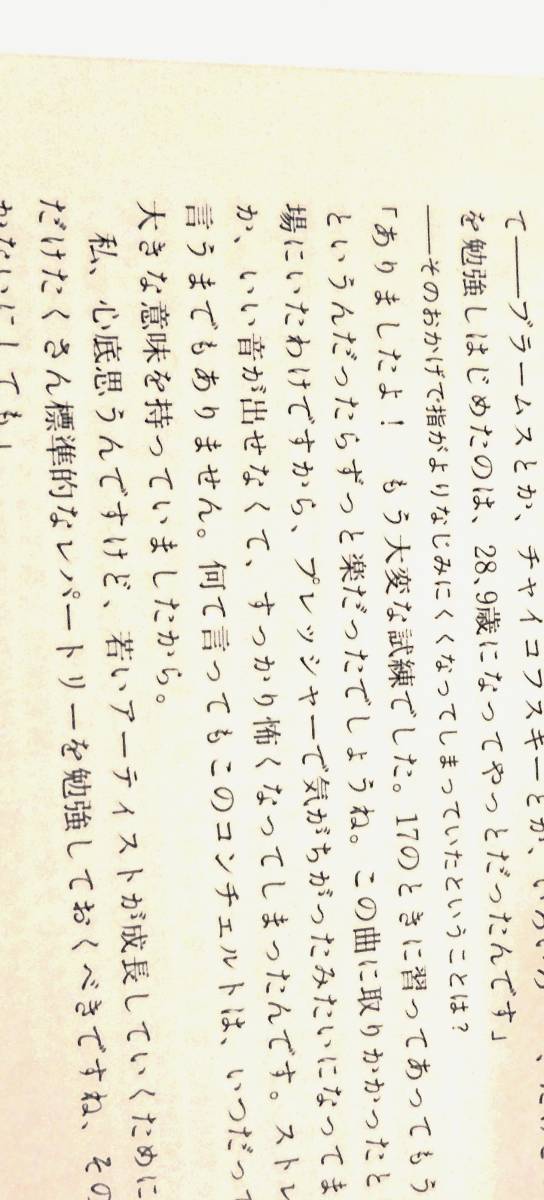 て――ブラームスとか、チャイコフスキーとか、いろいろ
を勉強しはじめたのは、28、9歳になってやっとだったんです」
――そのおかげで指がよりなじみにくくなってしまっていたということは？
「ありましたよ！　もう大変な試練でした。17のときに習ってあってもう
というんだったらずっと楽だったでしょうね。この曲に取りかかったと
場にいたわけですから、プレッシャーで気がちがったみたいになってま
か、いい音が出せなくて、すっかり怖くなってしまったんです。ストレ
言うまでもありません。何て言ってもこのコンチェルトは、いつだって
大きな意味を持っていましたから。
私、心底思うんですけど、若いアーティストが成長していくために
だけたくさん標準的なレパートリーを勉強しておくべきですね、その
かないにしても」